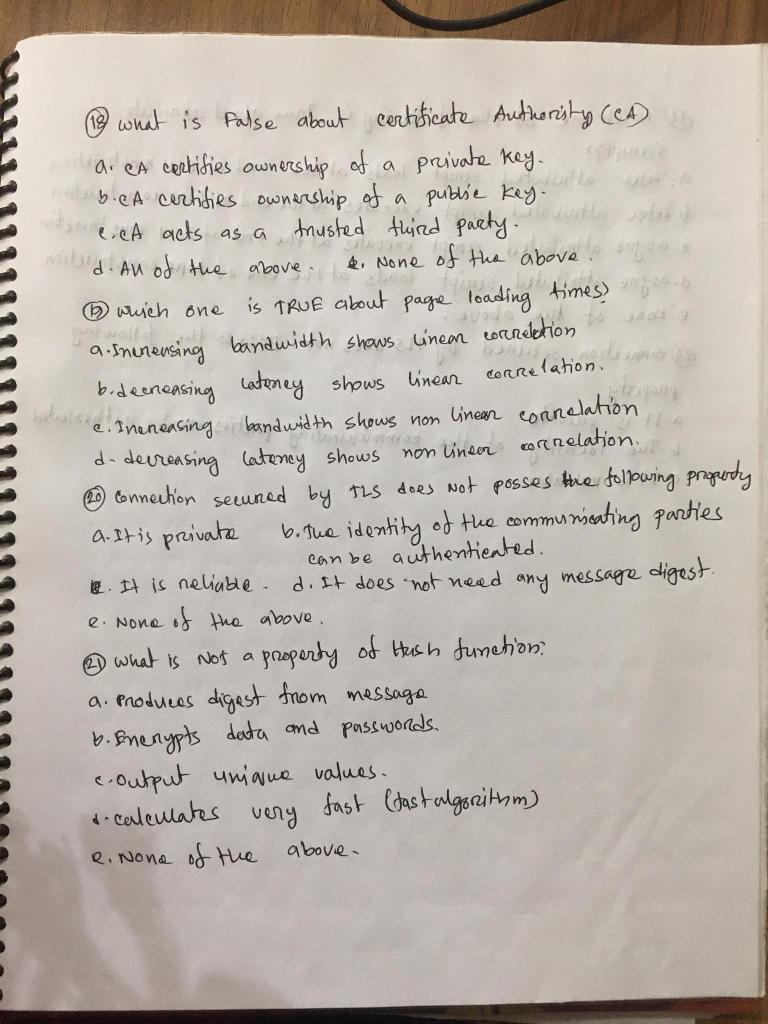 (18) What is False about certificate Authority (CA)
a. CA certifies ownership of a private key.
b. CA certifies ownership of a public key.
c. CA acts as a trusted third party.
d. All of the above. e. None of the above.
(19) which one is TRUE about page loading times?
a. Increasing bandwidth shows linear correlation
b. decreasing latency shows linear correlation.
c. Increasing bandwidth shows non linear correlation
d- decreasing latency shows non linear correlation.
(20) Connection secured by TLS does Not posses the following property
a. It is private b. The identity of the communicating parties
can be authenticated.
c. It is reliable. d. It does not need any message digest.
e. None of the above.
(21) What is Not a property of Hash function?
a. Produces digest from message
b. Encrypts data and passwords.
c. output unique values.
d. calculates very fast (fast algorithm)
e. None of the above.